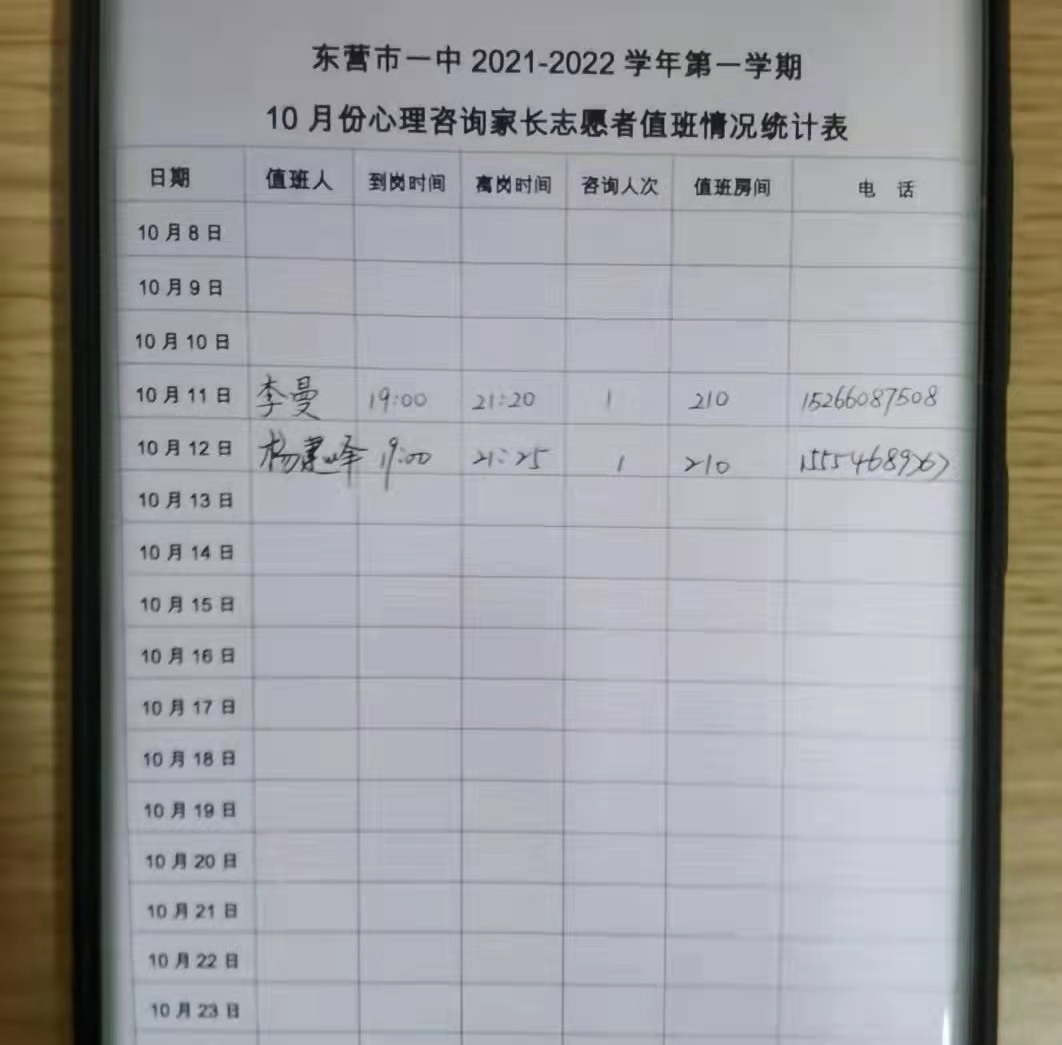 东营市一中 2021-2022 学年第一学期
10 月份心理咨询家长志愿者值班情况统计表
日期 值班人 到岗时间 离岗时间 咨询人次 值班房间 电 话
10 月 8 日
10 月 9 日
10 月 10 日
10 月 11 日 李曼 19:00 21:20 1 210 15266087508
10 月 12 日 杨建峰 19:00 21:25 1 210
10 月 13 日
10 月 14 日
10 月 15 日
10 月 16 日
10 月 17 日
10 月 18 日
10 月 19 日
10 月 20 日
10 月 21 日
10 月 22 日
10 月 23 日